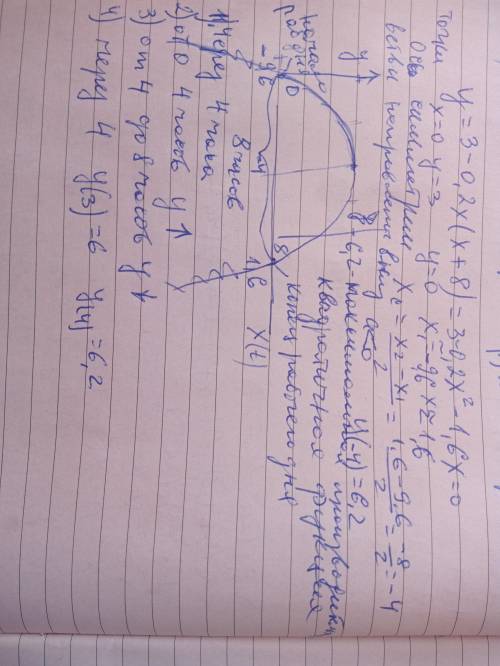 y = 3 - 0,2x(x+8) = 3 - 0,2x² - 1,6x = 0
точки x=0 y=3 y=0 x₁=-9,6 x₂=1,6
Ось симметрии x₀ = x₂-x₁/2 = 1,6-9,6/2 = -8/2 = -4
ветви направлены вниз a<0 y(-4)=6,2
y
6,2 - максимальной производит.
квадратичная функция
начало раб дня
-9,6
0
-4
8 часов
8
1,6
x(t)
конец рабочего дня
1) через 4 часа
2) от 0 4 часов y↑
3) от 4 до 8 часов y↓
4) через 4 y(3)=6 y(4)=6,2